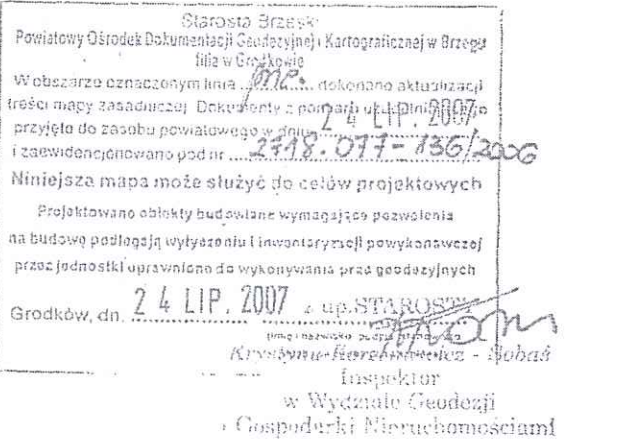 Starosta Brzeski
Powiatowy Ośrodek Dokumentacji Geodezyjnej i Kartograficznej w Brzegu
filia w Grodkowie
W obszarze oznaczonym linią ......... dokonano aktualizacji
treści mapy zasadniczej. Dokumenty z pomiaru
przyjęto do zasobu powiatowego w dniu 24 LIP. 2007
i zaewidencjonowano pod nr 2718.077-136/2006
Niniejsza mapa może służyć do celów projektowych
Projektowane obiekty budowlane wymagające pozwolenia
na budowę podlegają wytyczeniu i inwentaryzacji powykonawczej
przez jednostki uprawnione do wykonywania prac geodezyjnych
Grodków, dn. 24 LIP. 2007 z up. STAROSTY
Krystyna - Sobań
Inspektor
w Wydziale Geodezji
i Gospodarki Nieruchomościami